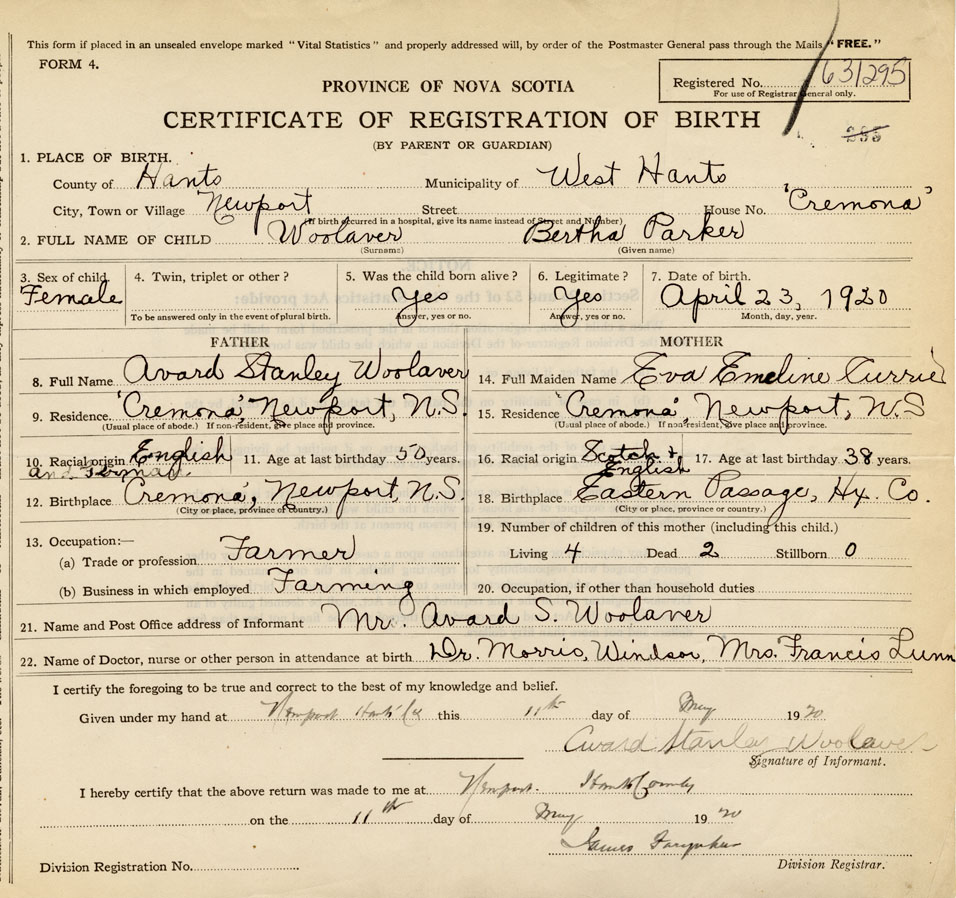 This form if placed in an unsealed envelope marked "Vital Statistics" and properly addressed will, by order of the Postmaster General pass through the Mails "FREE."
FORM 4.
PROVINCE OF NOVA SCOTIA
Registered No. 631295
For use of Registrar General only.
CERTIFICATE OF REGISTRATION OF BIRTH
(BY PARENT OR GUARDIAN)
1. PLACE OF BIRTH.
County of Hants Municipality of West Hants
City, Town or Village Newport Street House No. 'Cremona'
(If birth occurred in a hospital, give its name instead of Street and Number)
2. FULL NAME OF CHILD Woolaver Bertha Parker
(Surname) (Given name)
3. Sex of child 4. Twin, triplet or other? 5. Was the child born alive? 6. Legitimate? 7. Date of birth.
Female Yes Yes April 23, 1920
To be answered only in the event of plural birth. Answer, yes or no. Answer, yes or no. Month, day, year.
FATHER MOTHER
8. Full Name Avard Stanley Woolaver 14. Full Maiden Name Eva Emeline Currie
9. Residence. 'Cremona', Newport, N.S. 15. Residence 'Cremona', Newport, N.S
(Usual place of abode.) If non-resident, give place and province. (Usual place of abode.) If non-resident, give place and province.
10. Racial origin English and German 11. Age at last birthday 50 years. 16. Racial origin Scotch + English 17. Age at last birthday 38 years.
12. Birthplace 'Cremona', Newport, N.S. 18. Birthplace Eastern Passage, Hx. Co.
(City or place, province or country.) (City or place, province or country.)
13. Occupation:— 19. Number of children of this mother (including this child.)
(a) Trade or profession Farmer Living 4 Dead 2 Stillborn 0
(b) Business in which employed Farming 20. Occupation, if other than household duties
21. Name and Post Office address of Informant Mr. Avard S. Woolaver
22. Name of Doctor, nurse or other person in attendance at birth Dr. Morris, Windsor, Mrs. Francis Lunn
I certify the foregoing to be true and correct to the best of my knowledge and belief.
Given under my hand at Newport Hants Co this 11th day of May 1920
Avard Stanley Woolaver
Signature of Informant.
I hereby certify that the above return was made to me at Newport. Hants County
on the 11th day of May 1920
James
Division Registration No. Division Registrar.